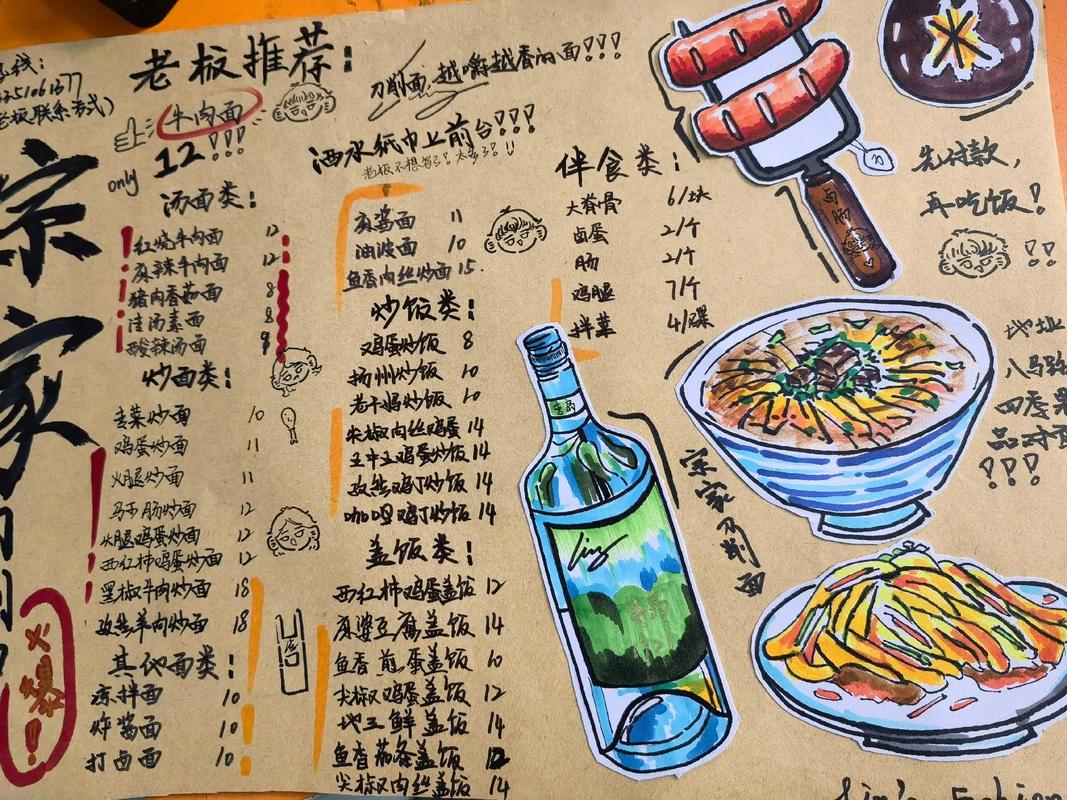 老板推荐:
牛肉面
only 12!!!
刀削面,越嚼越香的面!!!
酒水纸巾上前台!!!
老板不想写了!太多了!!
宗家
汤面类:
红烧牛肉面 12
麻辣牛肉面 12
猪肉香菇面 8
洼汤素面 8
酸辣汤面 9
炒面类:
素菜炒面 10
鸡蛋炒面 11
火腿炒面 11
马子肠炒面 12
火腿鸡蛋炒面 12
西红柿鸡蛋炒面 12
黑椒牛肉炒面 18
孜然羊肉炒面 18
火爆!
其他面类:
凉拌面 10
炸酱面 10
打卤面 10
麻酱面 11
油泼面 10
鱼香肉丝炒面 15
炒饭类:
鸡蛋炒饭 8
扬州炒饭 10
老干妈炒饭 10
尖椒肉丝鸡蛋 14
王中王鸡蛋炒饭 14
孜然鸡丁炒饭 14
咖喱鸡丁炒饭 14
盖饭类:
西红柿鸡蛋盖饭 12
麻婆豆腐盖饭 14
鱼香煎蛋盖饭 10
尖椒鸡蛋盖饭 12
地三鲜盖饭 14
鱼香茄条盖饭 12
尖椒肉丝盖饭 14
伴食类:
大脊骨 6/块
卤蛋 2/个
肠 2/个
鸡腿 7/个
拌菜 4/碟
卤肠
先付款,
再吃饭!
!!
宗家刀削面
地址
八马路
四季果
品对面
!!!